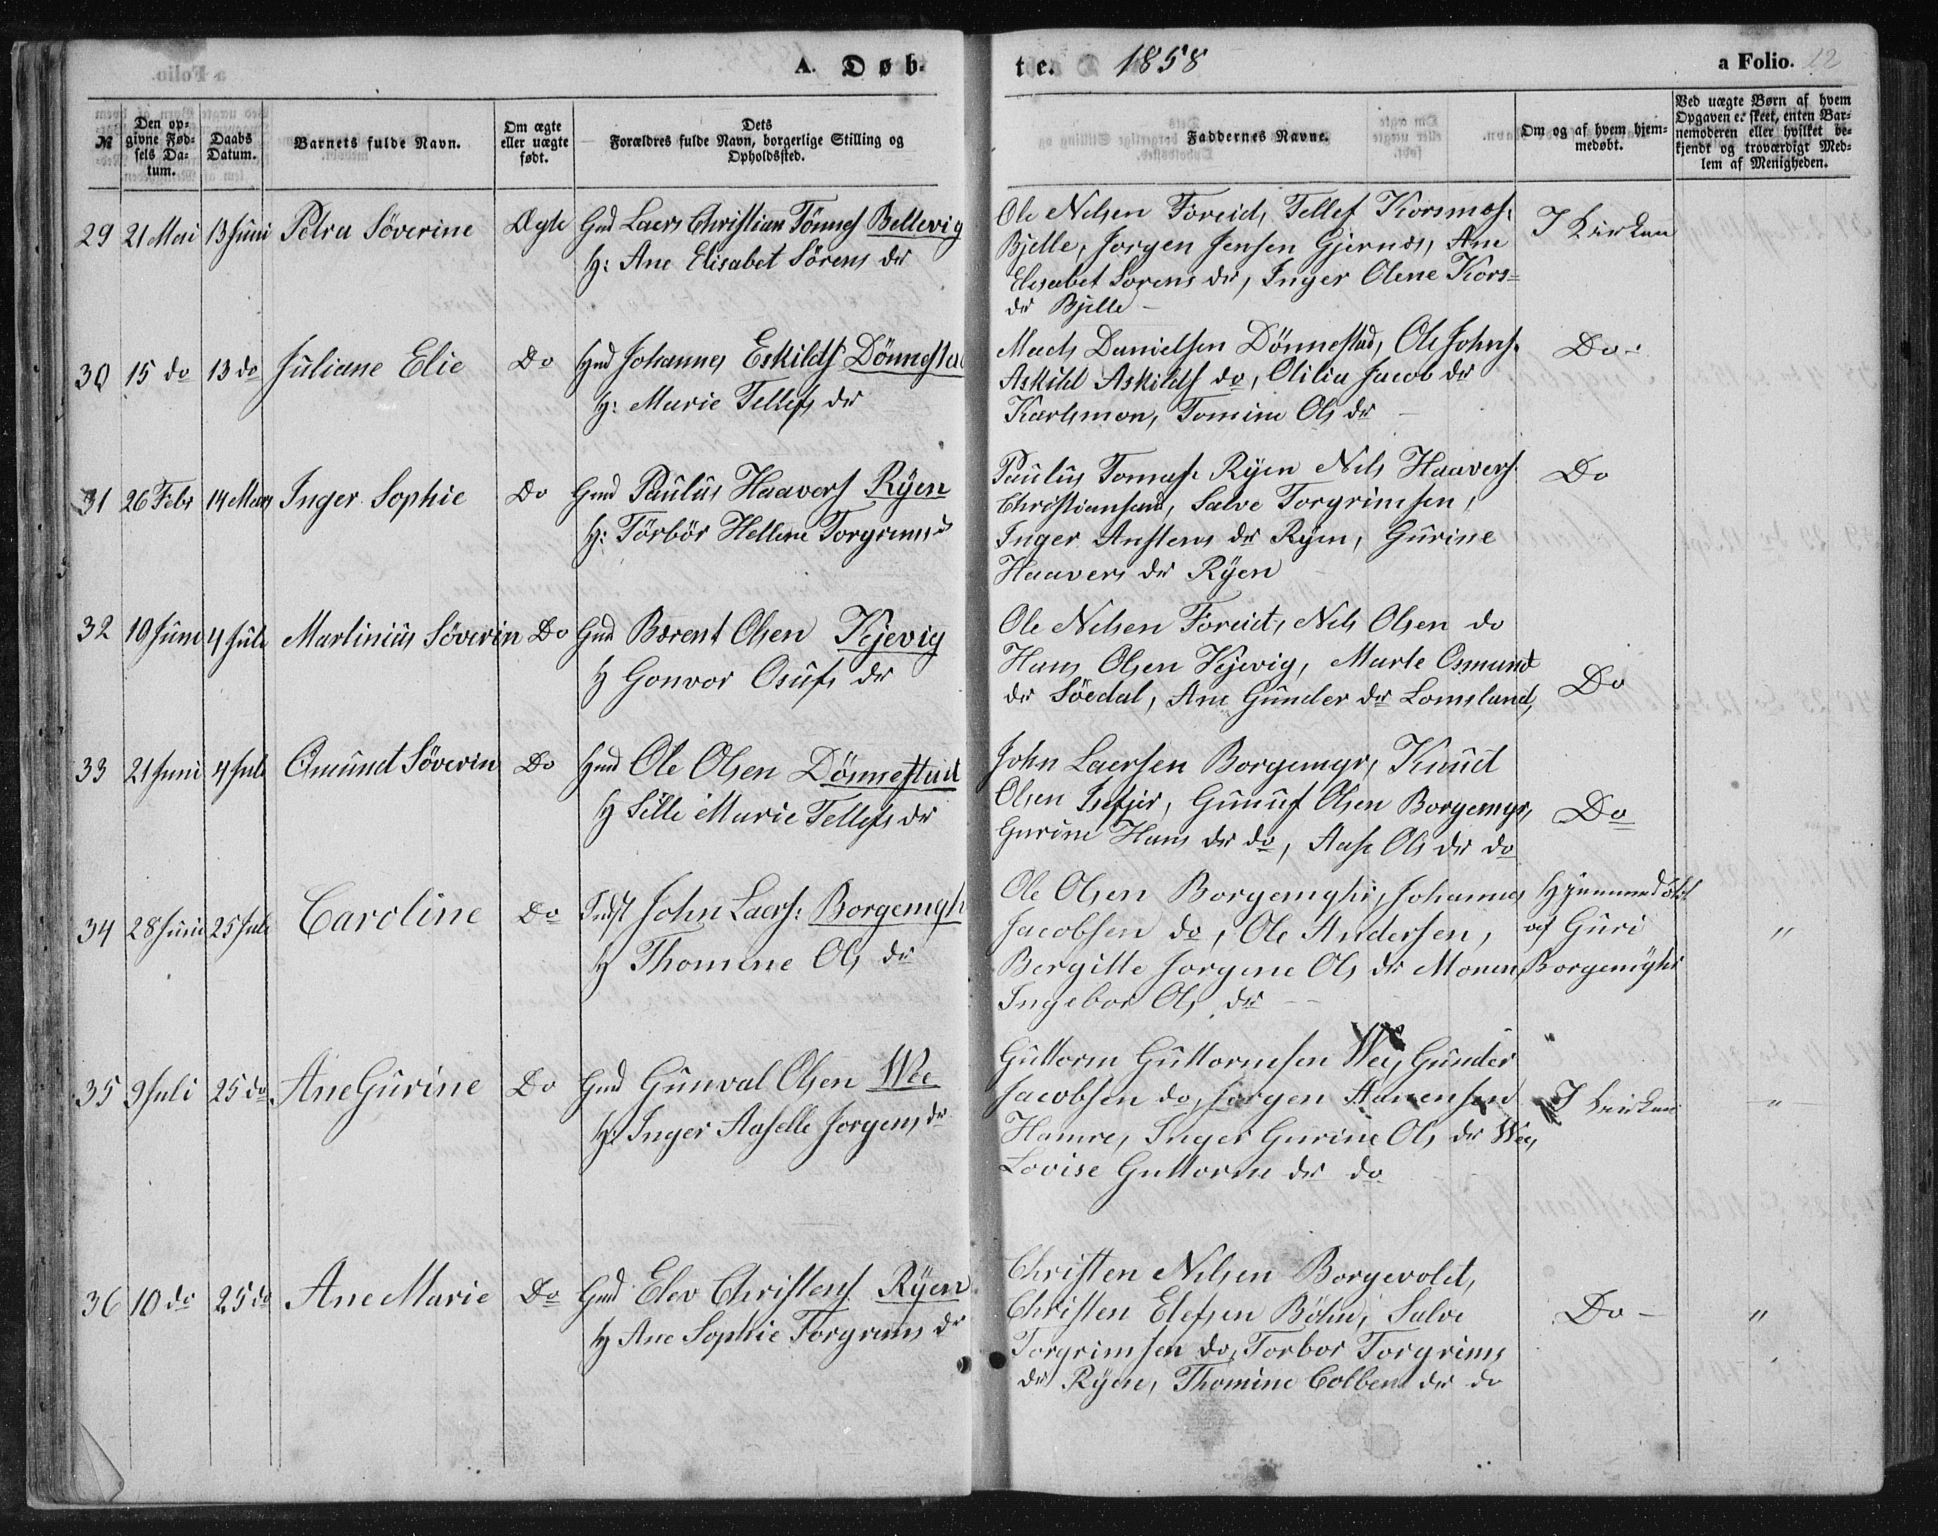 A. Døbte. 1858 a Folio. 12
№
Den opgivne Fødsels Datum.
Daabs Datum.
Barnets fulde Navn.
Om ægte eller uægte født.
Dets Forældres fulde Navn, borgerlige Stilling og Opholdssted.
Faddernes Navne.
Om og af hvem hjemmedøbt.
Ved uægte Børn af hvem Opgaven er skeet, enten Barnemoderen eller hvilket bekjendt og troværdigt Medlem af Menigheden.
29 21 Mai 13 Juni Petra Söverine Ægte Gmd Laers Christian Tönnes Bellevig
H: Ane Elisabet Sörens dr
Ole Nelsen Foreid, Tellef Korsmos:
Bjelle, Jorgen Jensen Gjernes, Ane
Elisabet Sorens dr, Inger Olene Kors=
dr Bjelle –
I Kirken
30 15 do 13 do Juliane Elie Do Hmd Johannes Eskilds Dönnestad
H: Marie Tellefs dr
Mads Danielsen Dönnestad, Ole Johns.
Askild Askilds do, Otilia Jacob dr
Karlsmon, Tomine Ols dr –
Do –
31 26 Febr 14 Mars Inger Sophie Do Gmd Paulus Haavors Ryen
H: Törbör Hellene Torgrims dr
Paulus Tomas: Ryen Nils Haavers
Christiansand, Salve Torgrimsen,
Inger Anstens dr Ryen, Gurine
Haavers dr Ryen
Do
32 19 Juni 4 Juli Martinius Söverin Do Gmd Bærent Olsen Kjevig
H Gonvor Osufs dr
Ole Nelsen Foreid, Nels Olsen do
Hans Olsen Kjevig, Marte Osmund
dr Söedal, Ane Gunder dr Lomsland,
Do
33 21 Juni 4 Juli Omund Söverin Do Hmd Ole Olsen Dönnestad
H Sille Marie Tellefs dr
John Laersen Borgemyr, Knud
Olsen Isefjer, Gunuf Olsen Borgemyr,
Gurine Hans dr do, Aase Ols dr do
Do
34 28 Juni 25 Juli Caroline Do Indst John Laers: Borgemyh
H Thomine Ols dr
Ole Olsen Borgemyhr, Johannes
Jacobsen do, Ole Andersen,
Bergitte Jorgine Ols dr Monen,
Ingebor Ols dr – –
Hjemmedöbt
af Guri
Borgemyhr
"
35 9 Juli 25 do Ane Gurine Do Gmd Gunval Olsen Wee
H: Inger Aaselle Jorgens dr
Guttorm Guttormsen Wee, Gunder
Jacobsen do, Jorgen Aanensen
Hamre, Inger Gurine Ols dr Wee,
Lovise Guttorm dr do
I Kirken
"
36 10 do 25 do Ane Marie Do Gmd Elev Christens Ryen
H Ane Sophie Torgrims dr
Christen Nelsen Borgevold,
Christen Elefsen Böhn, Salve
Torgrimsen do, Torbor Torgrims
dr Ryen, Thomine Colbens dr do
Do –
"